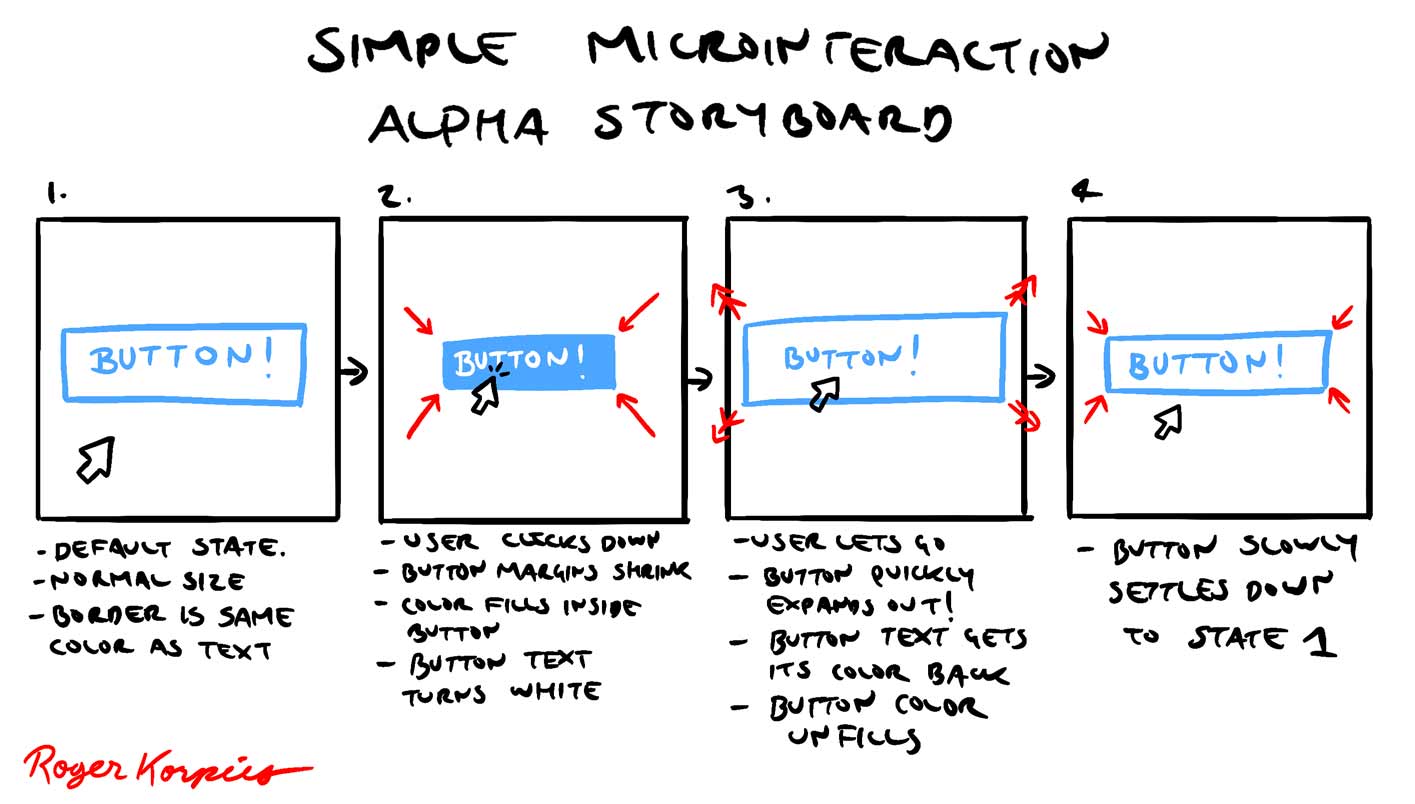 SIMPLE MICROINTERACTION
ALPHA STORYBOARD
1.
BUTTON!
- DEFAULT STATE.
- NORMAL SIZE
- BORDER IS SAME
COLOR AS TEXT
2.
BUTTON!
- USER CLICKS DOWN
- BUTTON MARGINS SHRINK
- COLOR FILLS INSIDE
BUTTON
- BUTTON TEXT
TURNS WHITE
3.
BUTTON!
- USER LETS GO
- BUTTON QUICKLY
EXPANDS OUT!
- BUTTON TEXT GETS
ITS COLOR BACK
- BUTTON COLOR
UNFILLS
4
BUTTON!
- BUTTON SLOWLY
SETTLES DOWN
TO STATE 1
Roger Korpics